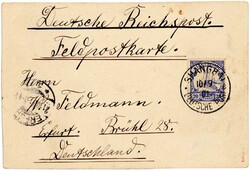 Deutsche Reichspost.
Feldpostkarte.
Herrn
W. Feldmann.
Erfurt. Brühl 28.
Deutschland.
SHANGHAI
DEUTSCHE